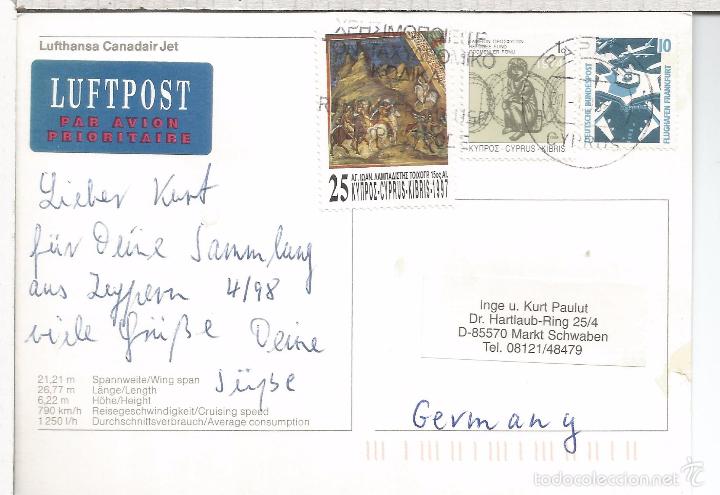 Lufthansa Canadair Jet
LUFTPOST
PAR AVION
PRIORITAIRE
ΧΡΗΣΙΜΟΠΟΙΕΙΤΕ
25
ΑΓ. ΙΩΑΝ. ΛΑΜΠΑΔΙΣΤΗΣ ΤΟΙΧΟΓΡ. 15ος ΑΙ.
ΚΥΠΡΟΣ·CYPRUS·KIBRIS·1997
1c
REFUGEE FUND
GÖÇMENLER FONU
ΚΥΠΡΟΣ - CYPRUS - KIBRIS
CYPRUS
10
DEUTSCHE BUNDESPOST
FLUGHAFEN FRANKFURT
Lieber Kurt
für Deine Sammlung
aus Zeypern 4/98
viele Grüße Deine
Süße
21,21 m Spannweite/Wing span
26,77 m Länge/Length
6,22 m Höhe/Height
790 km/h Reisegeschwindigkeit/Cruising speed
1 250 l/h Durchschnittsverbrauch/Average consumption
Inge u. Kurt Paulut
Dr. Hartlaub-Ring 25/4
D-85570 Markt Schwaben
Tel. 08121/48479
Germany
todocoleccion.net